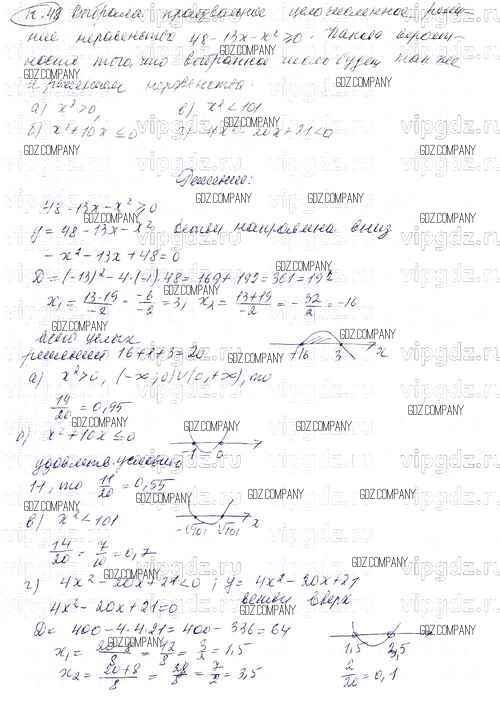 К. 48 Выбрали произвольное целочисленное реше-
ние неравенства 48 - 13x - x² ≥ 0. Какова вероят-
ность того, что выбранное число будет также
и решением неравенства:
а) x² > 0, в) x² < 101
б) x² + 10x ≤ 0 г) 4x² - 20x + 21 < 0
Решение:
48 - 13x - x² ≥ 0
y = 48 - 13x - x² ветви направлена вниз
- x² - 13x + 48 = 0
D = (-13)² - 4·(-1)·48 = 169 + 192 = 361 = 19²
x₁ = (13-19)/-2 = -6/-2 = 3, x₂ = (13+19)/-2 = - 32/2 = -16
всего целых
решений 16+1+3=20
-16 3 x
а) x² > 0, (-∞; 0)∪(0, +∞), то
19/20 = 0,95
б) x² + 10x ≤ 0
удовлетв. условию
11, то 11/20 = 0,55
в) x² < 101
-√101 √101 x
14/20 = 7/10 = 0,7
г) 4x² - 20x + 21 < 0; y = 4x² - 20x + 21
4x² - 20x + 21 = 0 ветви вверх
D = 400 - 4·4·21 = 400 - 336 = 64
x₁ = (20-8)/8 = 12/8 = 3/2 = 1,5
x₂ = (20+8)/8 = 28/8 = 7/2 = 3,5
1,5 3,5
2/20 = 0,1